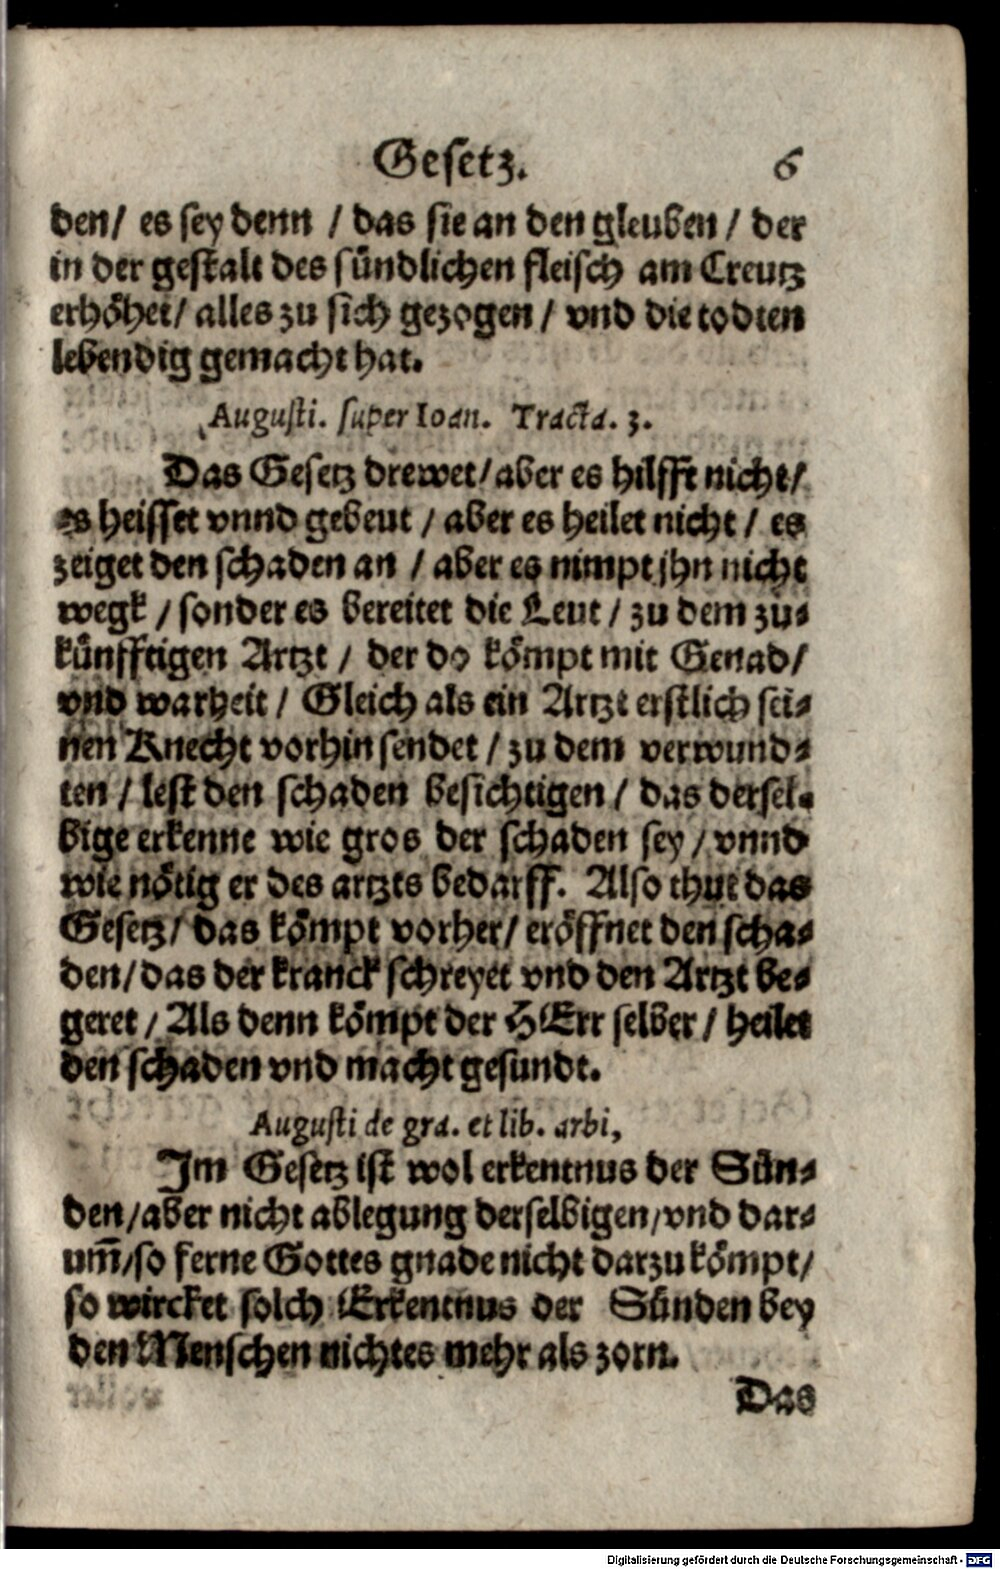 Gesetz. 6
den/ es sey denn / das sie an den gleuben / der
in der gestalt des sündlichen fleisch am Creutz
erhöhet/ alles zu sich gezogen / vnd die todten
lebendig gemacht hat.
Augusti. super Ioan. Tracta. 3.
Das Gesetz drewet/ aber es hilfft nicht/
es heisset vnnd gebeut / aber es heilet nicht / es
zeiget den schaden an / aber es nimpt jhn nicht
wegk / sonder es bereitet die Leut / zu dem zu-
künfftigen Artzt / der do kömpt mit Genad/
vnd warheit / Gleich als ein Artzt erstlich sei-
nen Knecht vorhin sendet / zu dem verwund-
ten / lest den schaden besichtigen / das dersel-
bige erkenne wie gros der schaden sey / vnnd
wie nötig er des artzts bedarff. Also thut das
Gesetz/ das kömpt vorher/ eröffnet den scha-
den/ das der kranck schreyet vnd den Artzt be-
geret / Als denn kömpt der HErr selber / heilet
den schaden vnd macht gesundt.
Augusti de gra. et lib. arbi,
Im Gesetz ist wol erkentnus der Sün-
den/ aber nicht ablegung derselbigen/ vnd dar-
um̃/ so ferne Gottes gnade nicht darzu kömpt/
so wircket solch Erkentnus der Sünden bey
den Menschen nichtes mehr als zorn.
Das
Digitalisierung gefördert durch die Deutsche Forschungsgemeinschaft - DFG